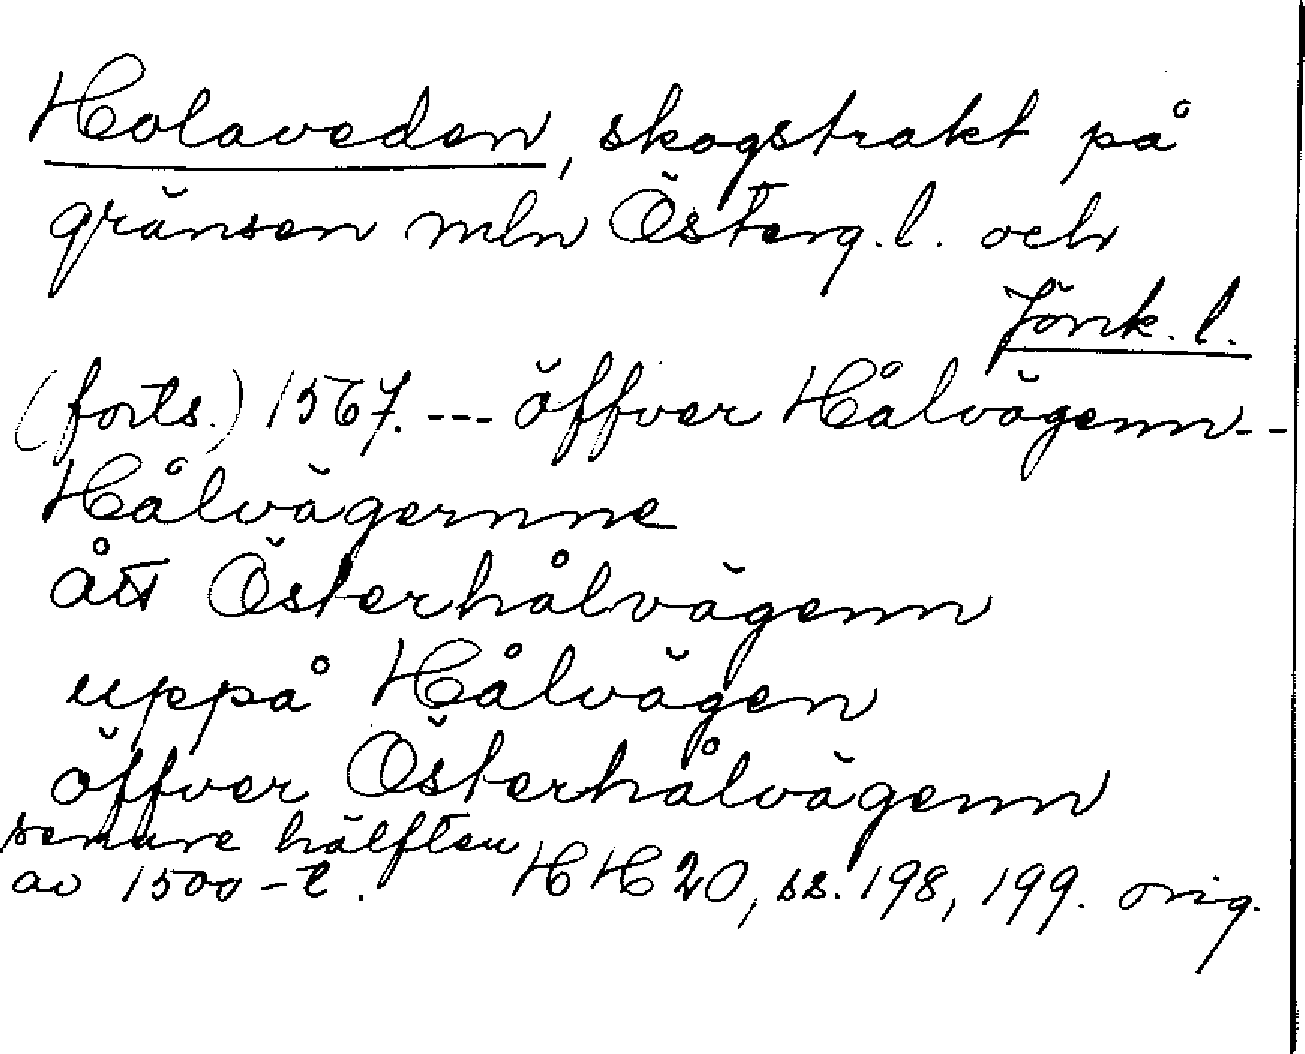 Holaveden, skogstrakt på
gränsen mln Österg.l. och
Jönk.l.
(forts.) 1567. --- öffver Hålvägenn--
Hålvägernne
ått Österhålvägenn
uppå Hålvägen
öffver Österhålvägenn
senare hälften
av 1500-t. HH 20, ss. 198, 199. orig.